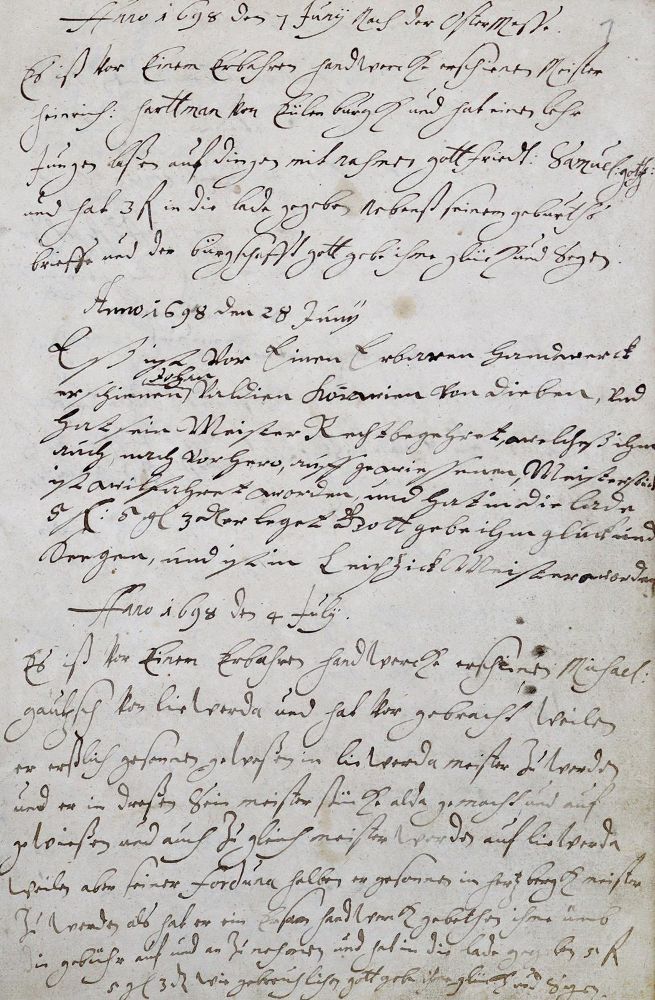 Anno 1698 den 7 Junÿ Nach der OsterMesse.
Es ist vor Einem Erbahren handwercke erschienen Meister
heinrich: harttman von Eülenburgk und hat einen lehr
Jungen laßen auf dingen mit nahmen gottfriedt: Samuel:
und hat 3 f in die lade gegeben Nebenst seinem geburths
brieffe und der bürgschafft gott gebe ihme glück und Segen.
Anno 1698 den 28 Junÿ
Eß ist Vor Einen Erbaren Handwerck
Johan
erschienen Valdien von Dieben, und
Hat sein Meister Recht begehret, welcheß ihm
auch, nach vorhero, auf gewiessenen, Meisterstück
ist willfahret worden, und hat in die lade
5 f: 5 gl 3 d erleget Gott gebe ihm gluck und
Seegen, und ist in Leichzick Meister worden
Anno 1698 den 4 Julÿ.
Es ist vor Einem Erbahren handwercke erschienen Michael:
von liewerda und hat vor gebracht weilen
er erstlich gesonnen geweßen in liewerda meister zu werden
und er in dreßen Sein meisterstücke alda gemacht und auf
gewießen und auch zu gleich meister worden auf liewerda
weilen aber seiner forduna halben er gesonnen in hertzbergk meister
zu werden als hat er ein Ersam handwerck gebethen ihme umb
die gebühr auf und an zu nehmen und hat in die lade gegeben 5 f
5 gl 3 d wie gebreuchlichen gott gebe ihme glück und Segen.